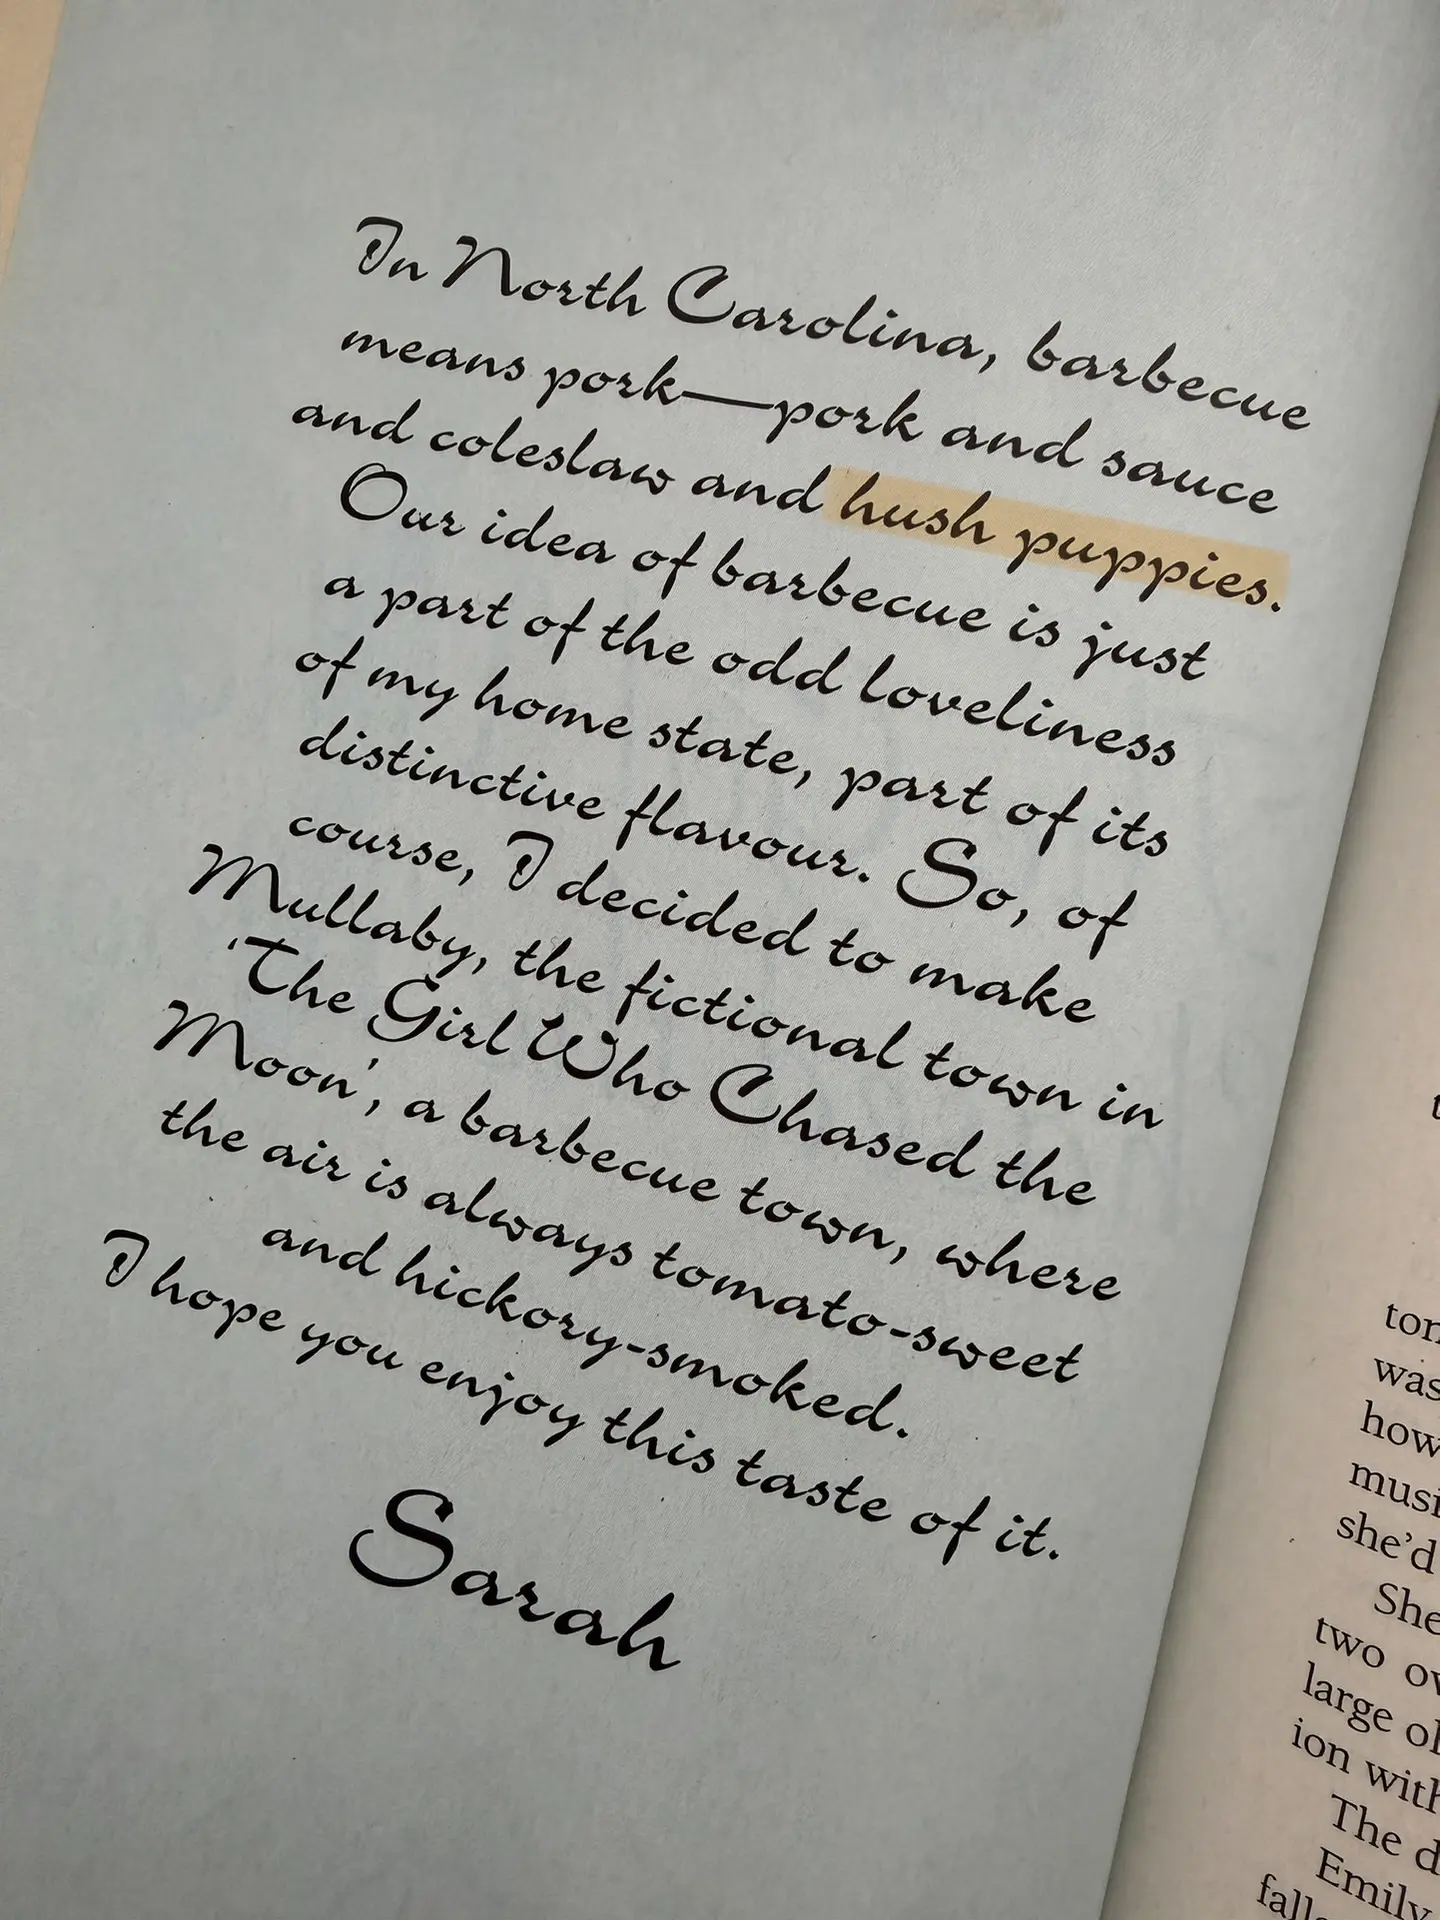 In North Carolina, barbecue
means pork—pork and sauce
and coleslaw and hush puppies.
Our idea of barbecue is just
a part of the odd loveliness
of my home state, part of its
distinctive flavour. So, of
course, I decided to make
Mullaby, the fictional town in
'The Girl Who Chased the
Moon', a barbecue town, where
the air is always tomato-sweet
and hickory-smoked.
I hope you enjoy this taste of it.
Sarah
was
how
she'd
She
two
large
ion with
The
Emily